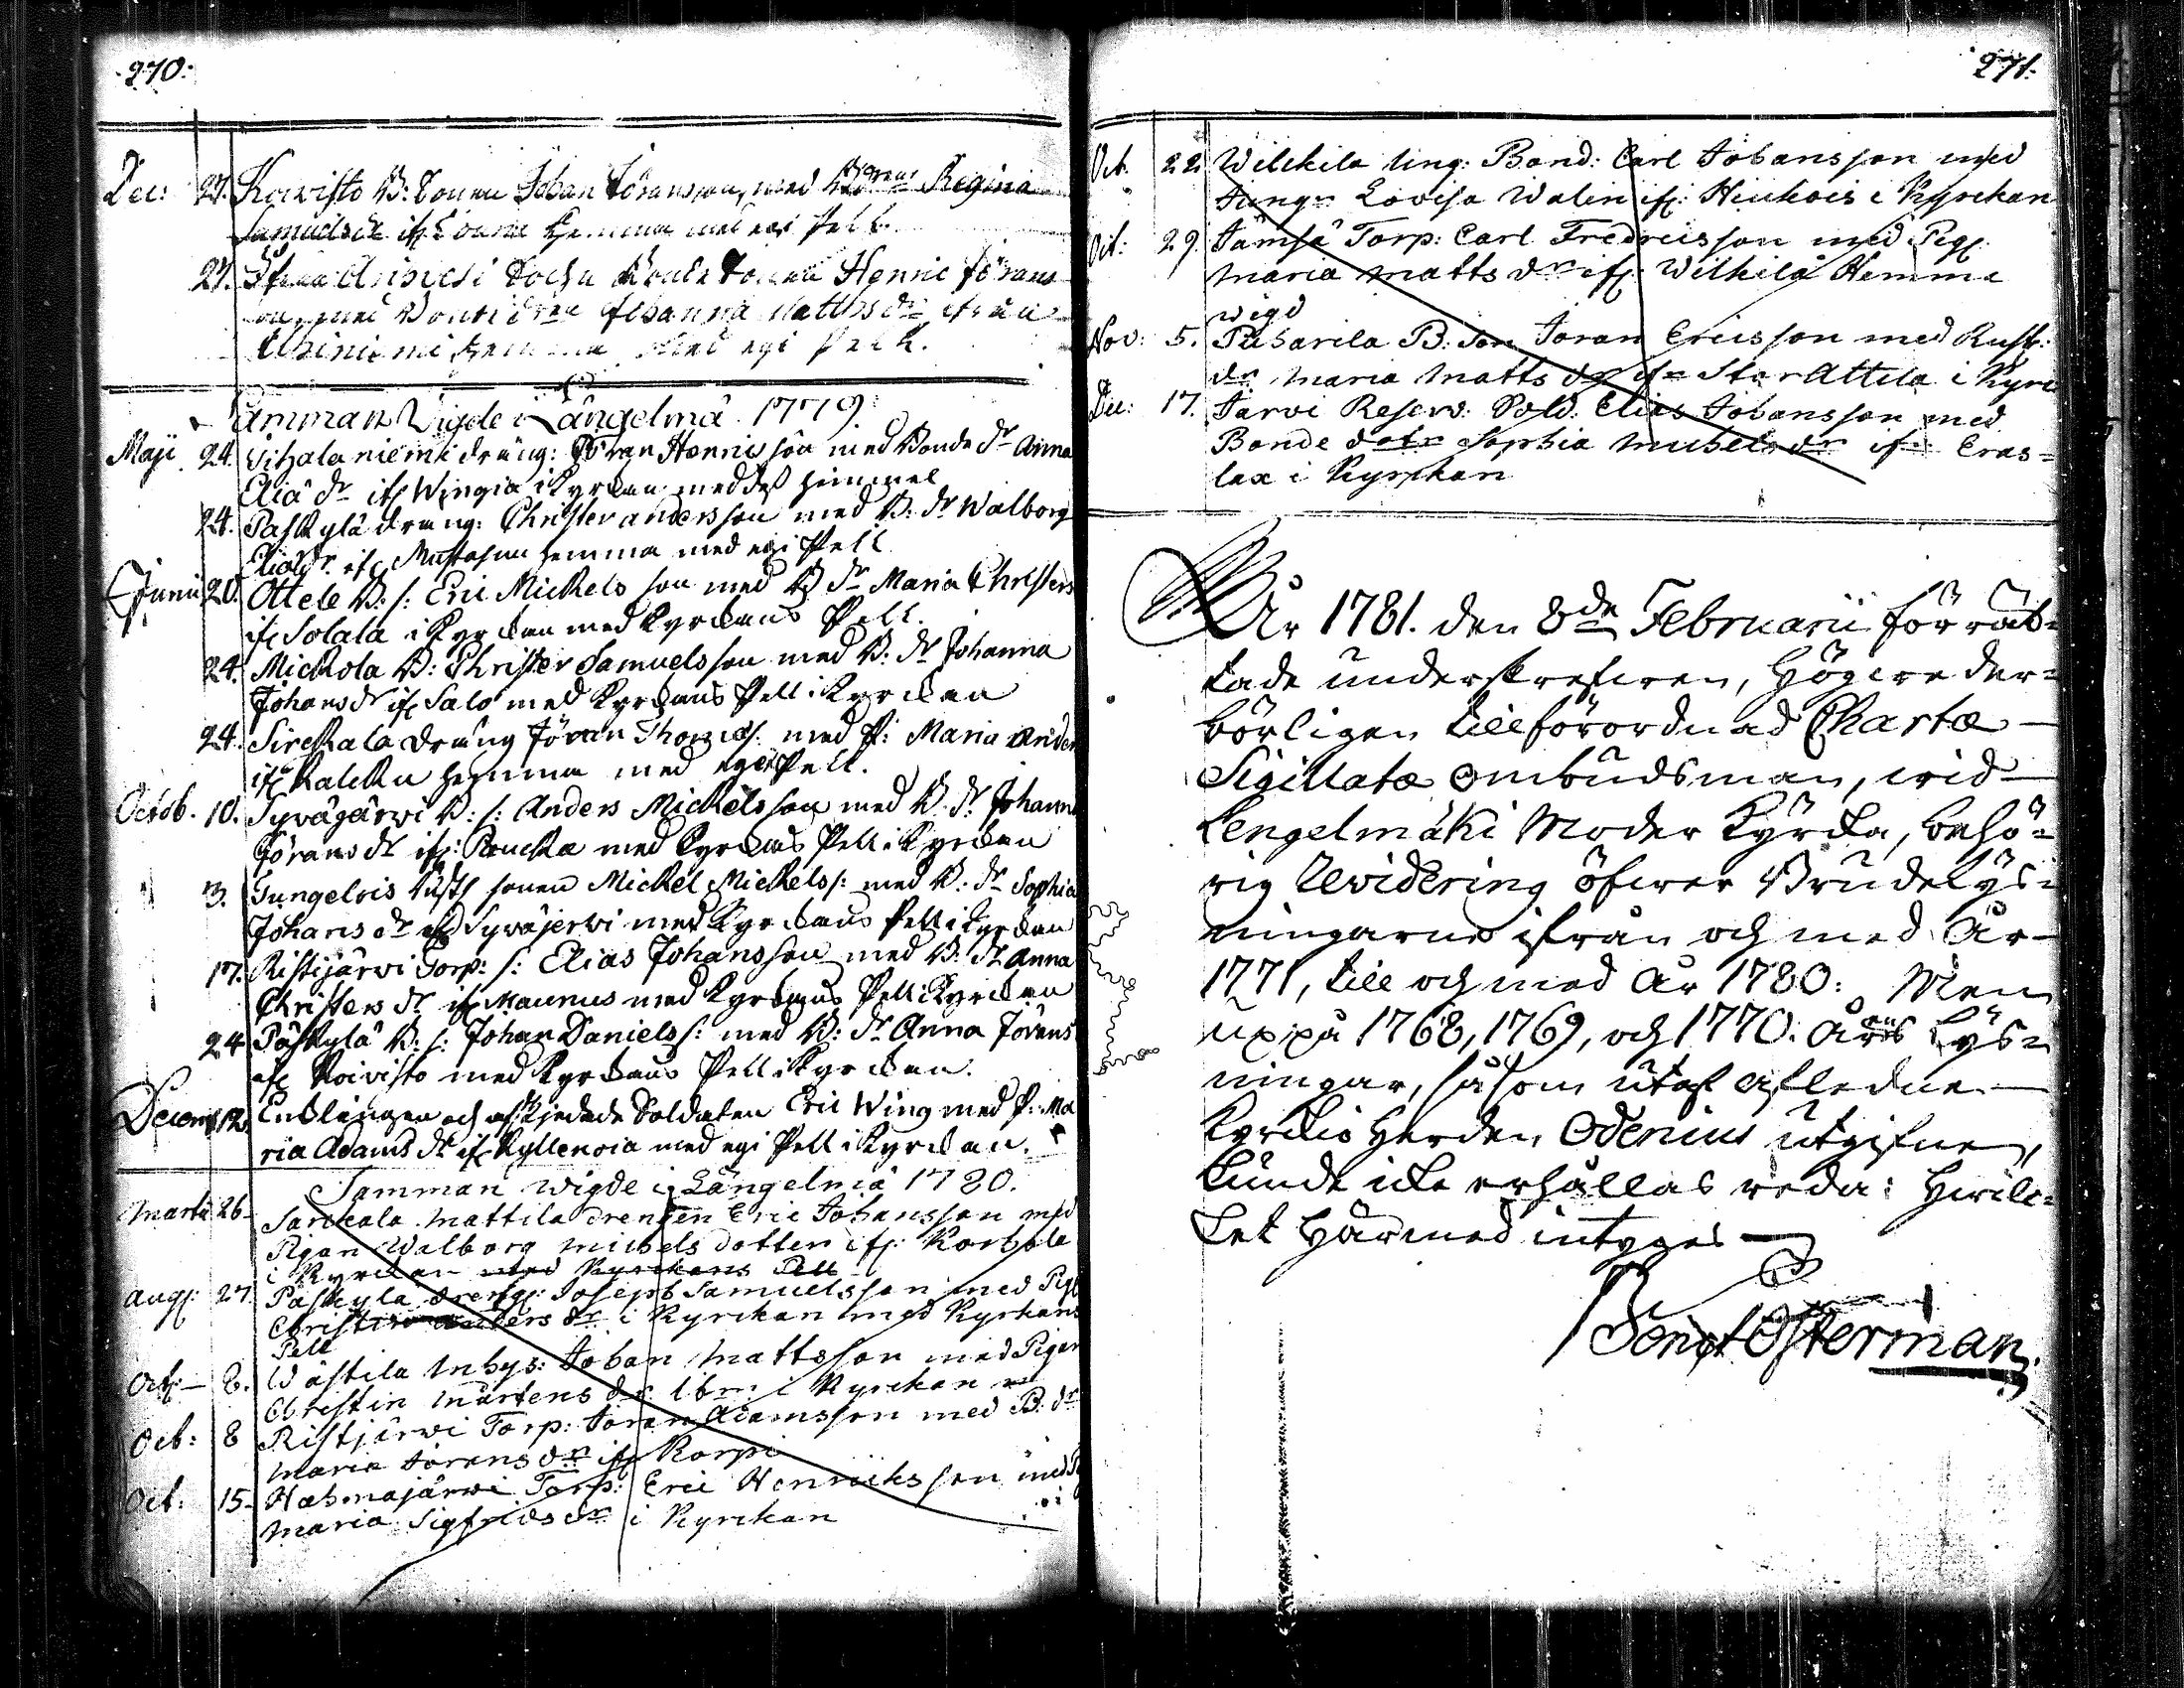 270.
Dec: 27. Koivisto B: Sonen Johan Jöransson, med B:drene Regina
Samuelsdr ifr Hemma med egi Pell
27. Bonde Sonen Henric Jörans
son, med Bonde dren Johanna Matthsdr ifrån
Uhiniemi Hemma Med egi Pell.
Samman Wigde i Längelmä 1779.
Maji 24. Vihalaniemi dräng: Jöran Henricsson med Bonde dr Anna
Eliæ dr ifr Wingia i Kyrckan med dess himmel
24. Paskylä dräng: Christer andersson med B: dr Walborg
Eliædr. ifr Mustasuu hemma med egi Pell
Junii 20. Ottele B: s: Eric Mickelsson med B dr Maria Christers
ifr Solala i Kyrckan med Kyrckans Pell.
24. Mickola B: Christer Samuelsson med B: dr Johanna
Johansdr ifr Salo med Kyrckans Pell i Kyrckan
24. Sirckala dräng Jöran Thomæs. med P: Maria Anders
ifr Kalcku hemma med egi Pell.
Octob. 10. Sywäjärwi B: s: Anders Mickelsson med B. dr Johanna
Jörans dr ifr: Poucka med Kyrckans Pell i Kyrckan
3. Jungelois Rusth sonen Mickel Mickels s: med B: dr Sophia
Johans dr ifr Sywäjerwi med Kyrckans Pell i Kyrckan
17. Ristijärwi Torp: s: Elias Johansson med B: dr Anna
Christers dr ifr Maunus med Kyrckans Pell i Kyrckan
24 Päskylä B: s: Johan Daniels s: med B: dr Anna Jörans
ifr Koivisto med Kyrckans Pell i Kyrckan.
Decemb 12. Encklingen och afskjedade Soldaten Eric Wing med P: Ma
ria Adams dr ifr Kyllenoia med egi Pell i Kyrckan.
Samman wigde i Längelmä 1780.
Martii 26. Sarckala Mattila drengen Eric Johansson med
Pigan Walborg Michels dotter ifr: Korhola
i Kyrckan med Kyrckans Pell
aug: 27 Päskyla dreng: Joseph Samuelsson med Pig:
Christin anders dr i Kyrckan med Kyrkans
Pell
Oct: 8. Wästila Inhys: Johan Mattsson med Pigan
Christin Mårtens dr ibm i Kyrckan
Oct: 8 Ristjärwi Torp: Jöran Adamsson med B: dr
Maria Jörans dr ifr Korpi
Oct: 15. Hahmajärwi Torp: Eric Henriksson med P
Maria Sigfrids dr i Kyrckan
271.
Oct. 22. Wilckila Ung: Bond: Carl Johansson med
Jungr Lovisa Walin ifr: Hiukois i Kyrckan
Oct: 29. Jämsä Torp: Carl Fredricsson med Pig:
Maria Matts dr ifr: Wilkila Hemma
wigd
Nov: 5. Puharila B: Son Jöran Ericsson med Rust:
dr Maria Matts dr ifr StorAttila i Kyrc
Dec: 17. Jarvi Reserv: Sold: Elias Johansson med
Bonde dotr Sophia Michelsdr ifr: Eräs=
lax i Kyrckan
År 1781. den 8de Februarii förrät=
tade underskrefwen, högwederbörligen
tillförordnad Chartæ
Sigillatæ ombudsman, wid
Lengelmäki Moder Kyrcka, behö=
rig Revidering öfwer Brudelys=
ningarne ifrån och med År
1771, till och med År 1780: Men
uppå 1768, 1769, och 1770. Års Lys=
ningar, såsom utaf afledne
Kyrckio Herden Odenius utgifne,
kunde icke erhållas reda: hwilc=
ket härmed intygas
Bengt Österman.